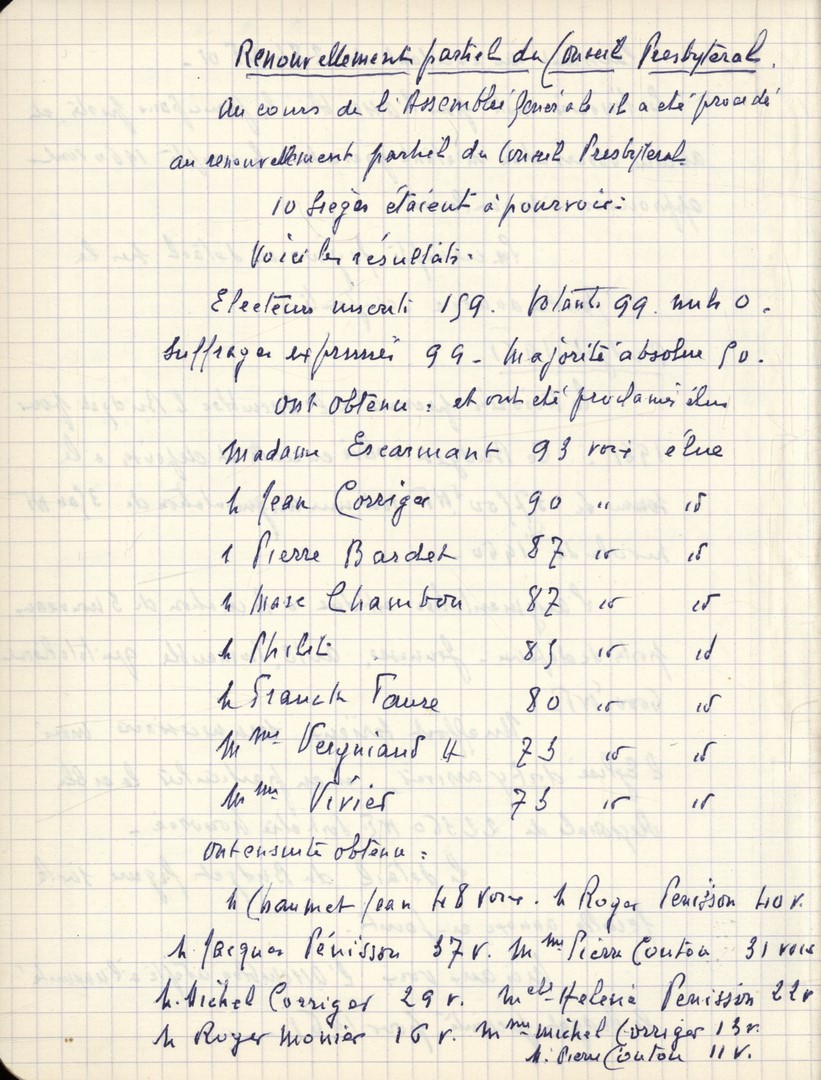 Renouvellement partiel du Conseil Presbytéral.
Au cours de l'Assemblée générale il a été procédé
au renouvellement partiel du Conseil Presbytéral.
10 sièges étaient à pourvoir :
Voici les résultats.
Electeurs inscrits 159. Votants 99. nuls 0.
Suffrages exprimés 99 - Majorité absolue 50.
Ont obtenu : et ont été proclamés élus
Madame Escarmant 93 voix élue
M Jean Corriger 90 " id
M Pierre Bardet 87 id id
M Marc Chambon 87 id id
M 85 id id
M Franck Faure 80 id id
Mme Vergniaud H 73 id id
Mme Vivier 73 id id
Ont ensuite obtenu :
M Chaumet Jean 48 voix. M Roger Pénisson 40 v.
M. Jacques Pénisson 37 v. Mme Pierre Couton 31 voix
M. Michel Corriger 29 v. Melle Helene Penisson 22 v
M Roger Monier 16 v. Mme Michel Corriger 13 v.
M. Pierre Couton 11 v.